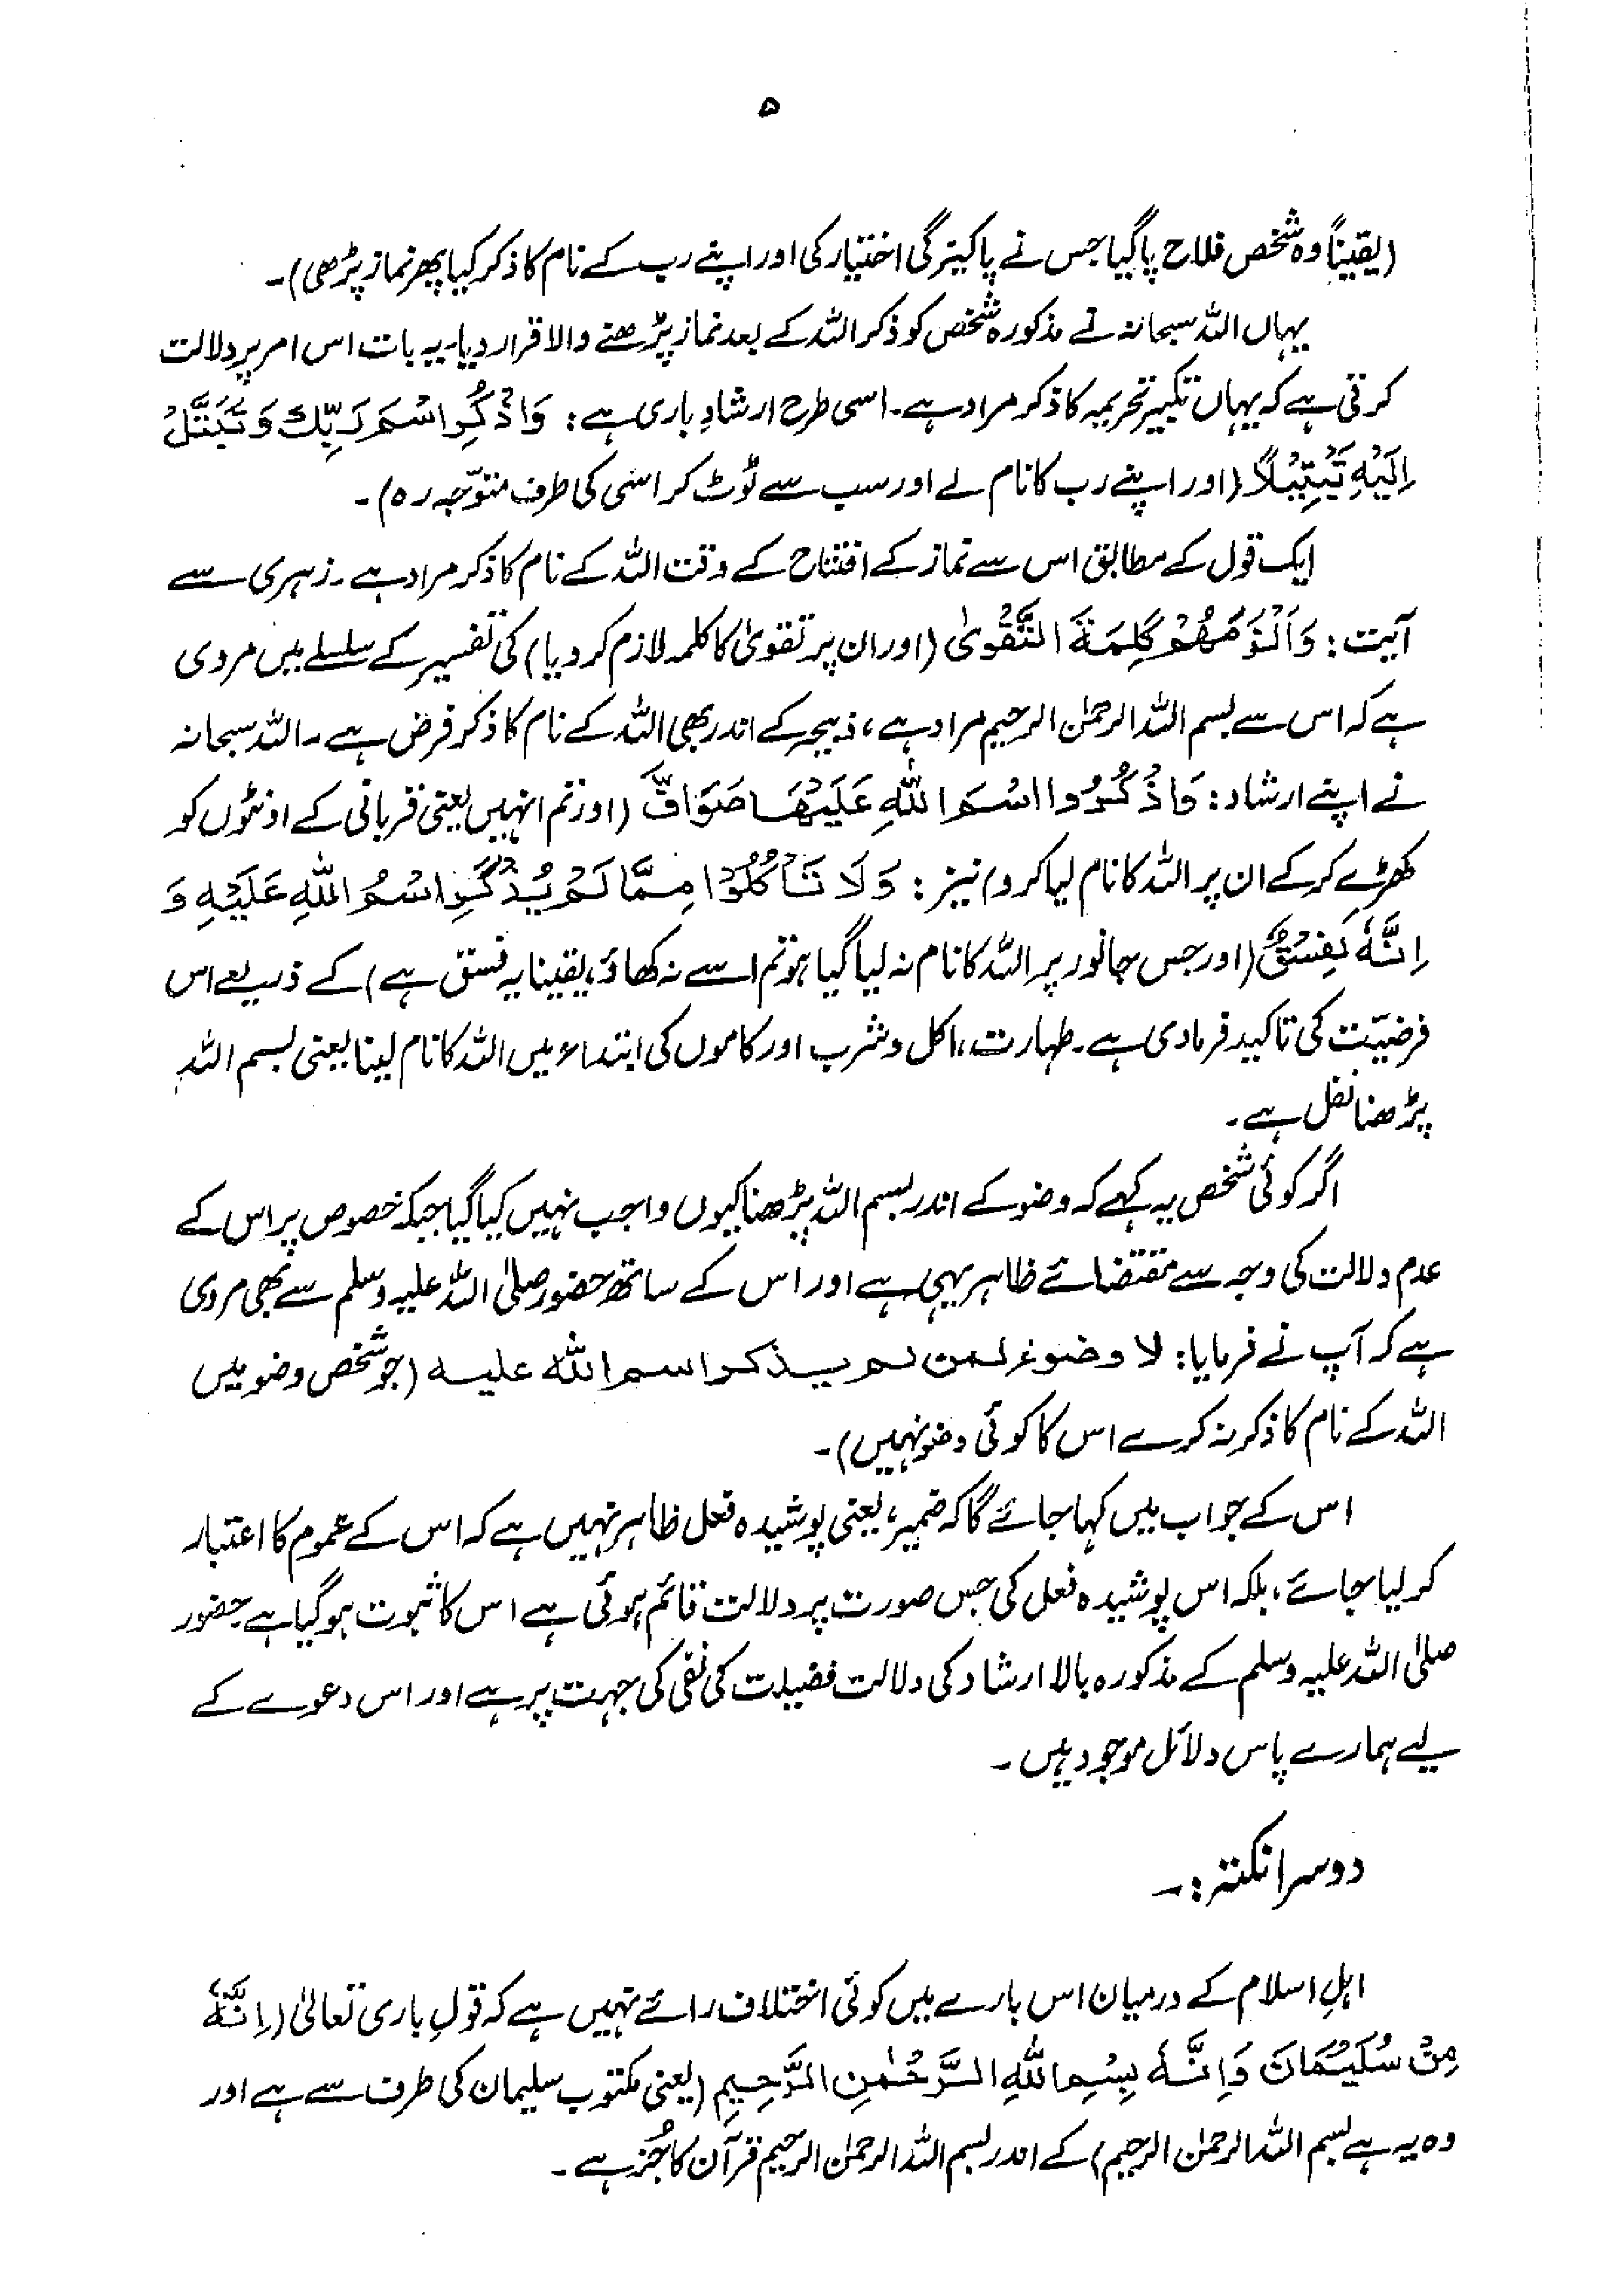 ۵
(یقیناً وہ شخص فلاح پا گیا جس نے پاکیزگی اختیار کی اور اپنے رب کے نام کا ذکر کیا پھر نماز پڑھی)۔
یہاں اللہ سبحانہ نے مذکورہ شخص کو ذکر اللہ کے بعد نماز پڑھنے والا قرار دیا۔ یہ بات اس امر پر دلالت
کرتی ہے کہ یہاں تکبیر تحریمہ کا ذکر مراد ہے۔ اسی طرح ارشادِ باری ہے: وَاذْكُرِ اسْمَ رَبِّكَ وَتَبَتَّلْ
اِلَيْهِ تَبْتِيْلًا (اور اپنے رب کا نام لے اور سب سے ٹوٹ کر اسی کی طرف متوّجہ رہ)۔
ایک قول کے مطابق اس سے نماز کے افتتاح کے وقت اللہ کے نام کا ذکر مراد ہے۔ زہری سے
آیت: وَاَلْزَمَهُمْ كَلِمَةَ التَّقْوىٰ (اور ان پر تقویٰ کا کلمہ لازم کر دیا) کی تفسیر کے سلسلے میں مروی
ہے کہ اس سے بسم اللہ الرحمٰن الرحیم مراد ہے، ذبیحہ کے اندر بھی اللہ کے نام کا ذکر فرض ہے۔ اللہ سبحانہ
نے اپنے ارشاد: فَاذْكُرُوا اسْمَ اللّٰهِ عَلَيْهَا صَوَافَّ (اور تم انہیں یعنی قربانی کے اونٹوں کو
کھڑے کر کے ان پر اللہ کا نام لیا کرو) نیز: وَلَا تَأْكُلُوْا مِمَّا لَمْ يُذْكَرِ اسْمُ اللّٰهِ عَلَيْهِ وَ
اِنَّهٗ لَفِسْقٌ (اور جس جانور پر اللہ کا نام نہ لیا گیا ہو تم اسے نہ کھاؤ، یقینا یہ فسق ہے) کے ذریعے اس
فرضیّت کی تاکید فرما دی ہے۔ طہارت، اکل و شرب اور کاموں کی ابتداء میں اللہ کا نام لینا یعنی بسم اللہ
پڑھنا نفل ہے۔
اگر کوئی شخص یہ کہے کہ وضو کے اندر بسم اللہ پڑھنا کیوں واجب نہیں کیا گیا جبکہ خصوص پر اس کے
عدم دلالت کی وجہ سے مقتضائے ظاہر یہی ہے اور اس کے ساتھ حضور صلی اللہ علیہ وسلم سے بھی مروی
ہے کہ آپ نے فرمایا: لا وضوء لمن لم يذكر اسم اللّٰه عليه (جو شخص وضو میں
اللہ کے نام کا ذکر نہ کرے اس کا کوئی وضو نہیں)۔
اس کے جواب میں کہا جائے گا کہ ضمیر، یعنی پوشیدہ فعل ظاہر نہیں ہے کہ اس کے عموم کا اعتبار
کر لیا جائے، بلکہ اس پوشیدہ فعل کی جس صورت پر دلالت قائم ہوئی ہے اس کا ثبوت ہو گیا ہے حضور
صلی اللہ علیہ وسلم کے مذکورہ بالا ارشاد کی دلالت فضیلت کی نفی کی جہت پر ہے اور اس دعوے کے
لیے ہمارے پاس دلائل موجود ہیں۔
دوسرا نکتہ:۔
اہلِ اسلام کے درمیان اس بارے میں کوئی اختلاف رائے نہیں ہے کہ قولِ باری تعالیٰ (اِنَّهٗ
مِنْ سُلَيْمَانَ وَاِنَّهٗ بِسْمِ اللّٰهِ الرَّحْمٰنِ الرَّحِيمِ (یعنی مکتوب سلیمان کی طرف سے ہے اور
وہ یہ ہے بسم اللہ الرحمٰن الرحیم) کے اندر بسم اللہ الرحمٰن الرحیم قرآن کا جُز ہے۔